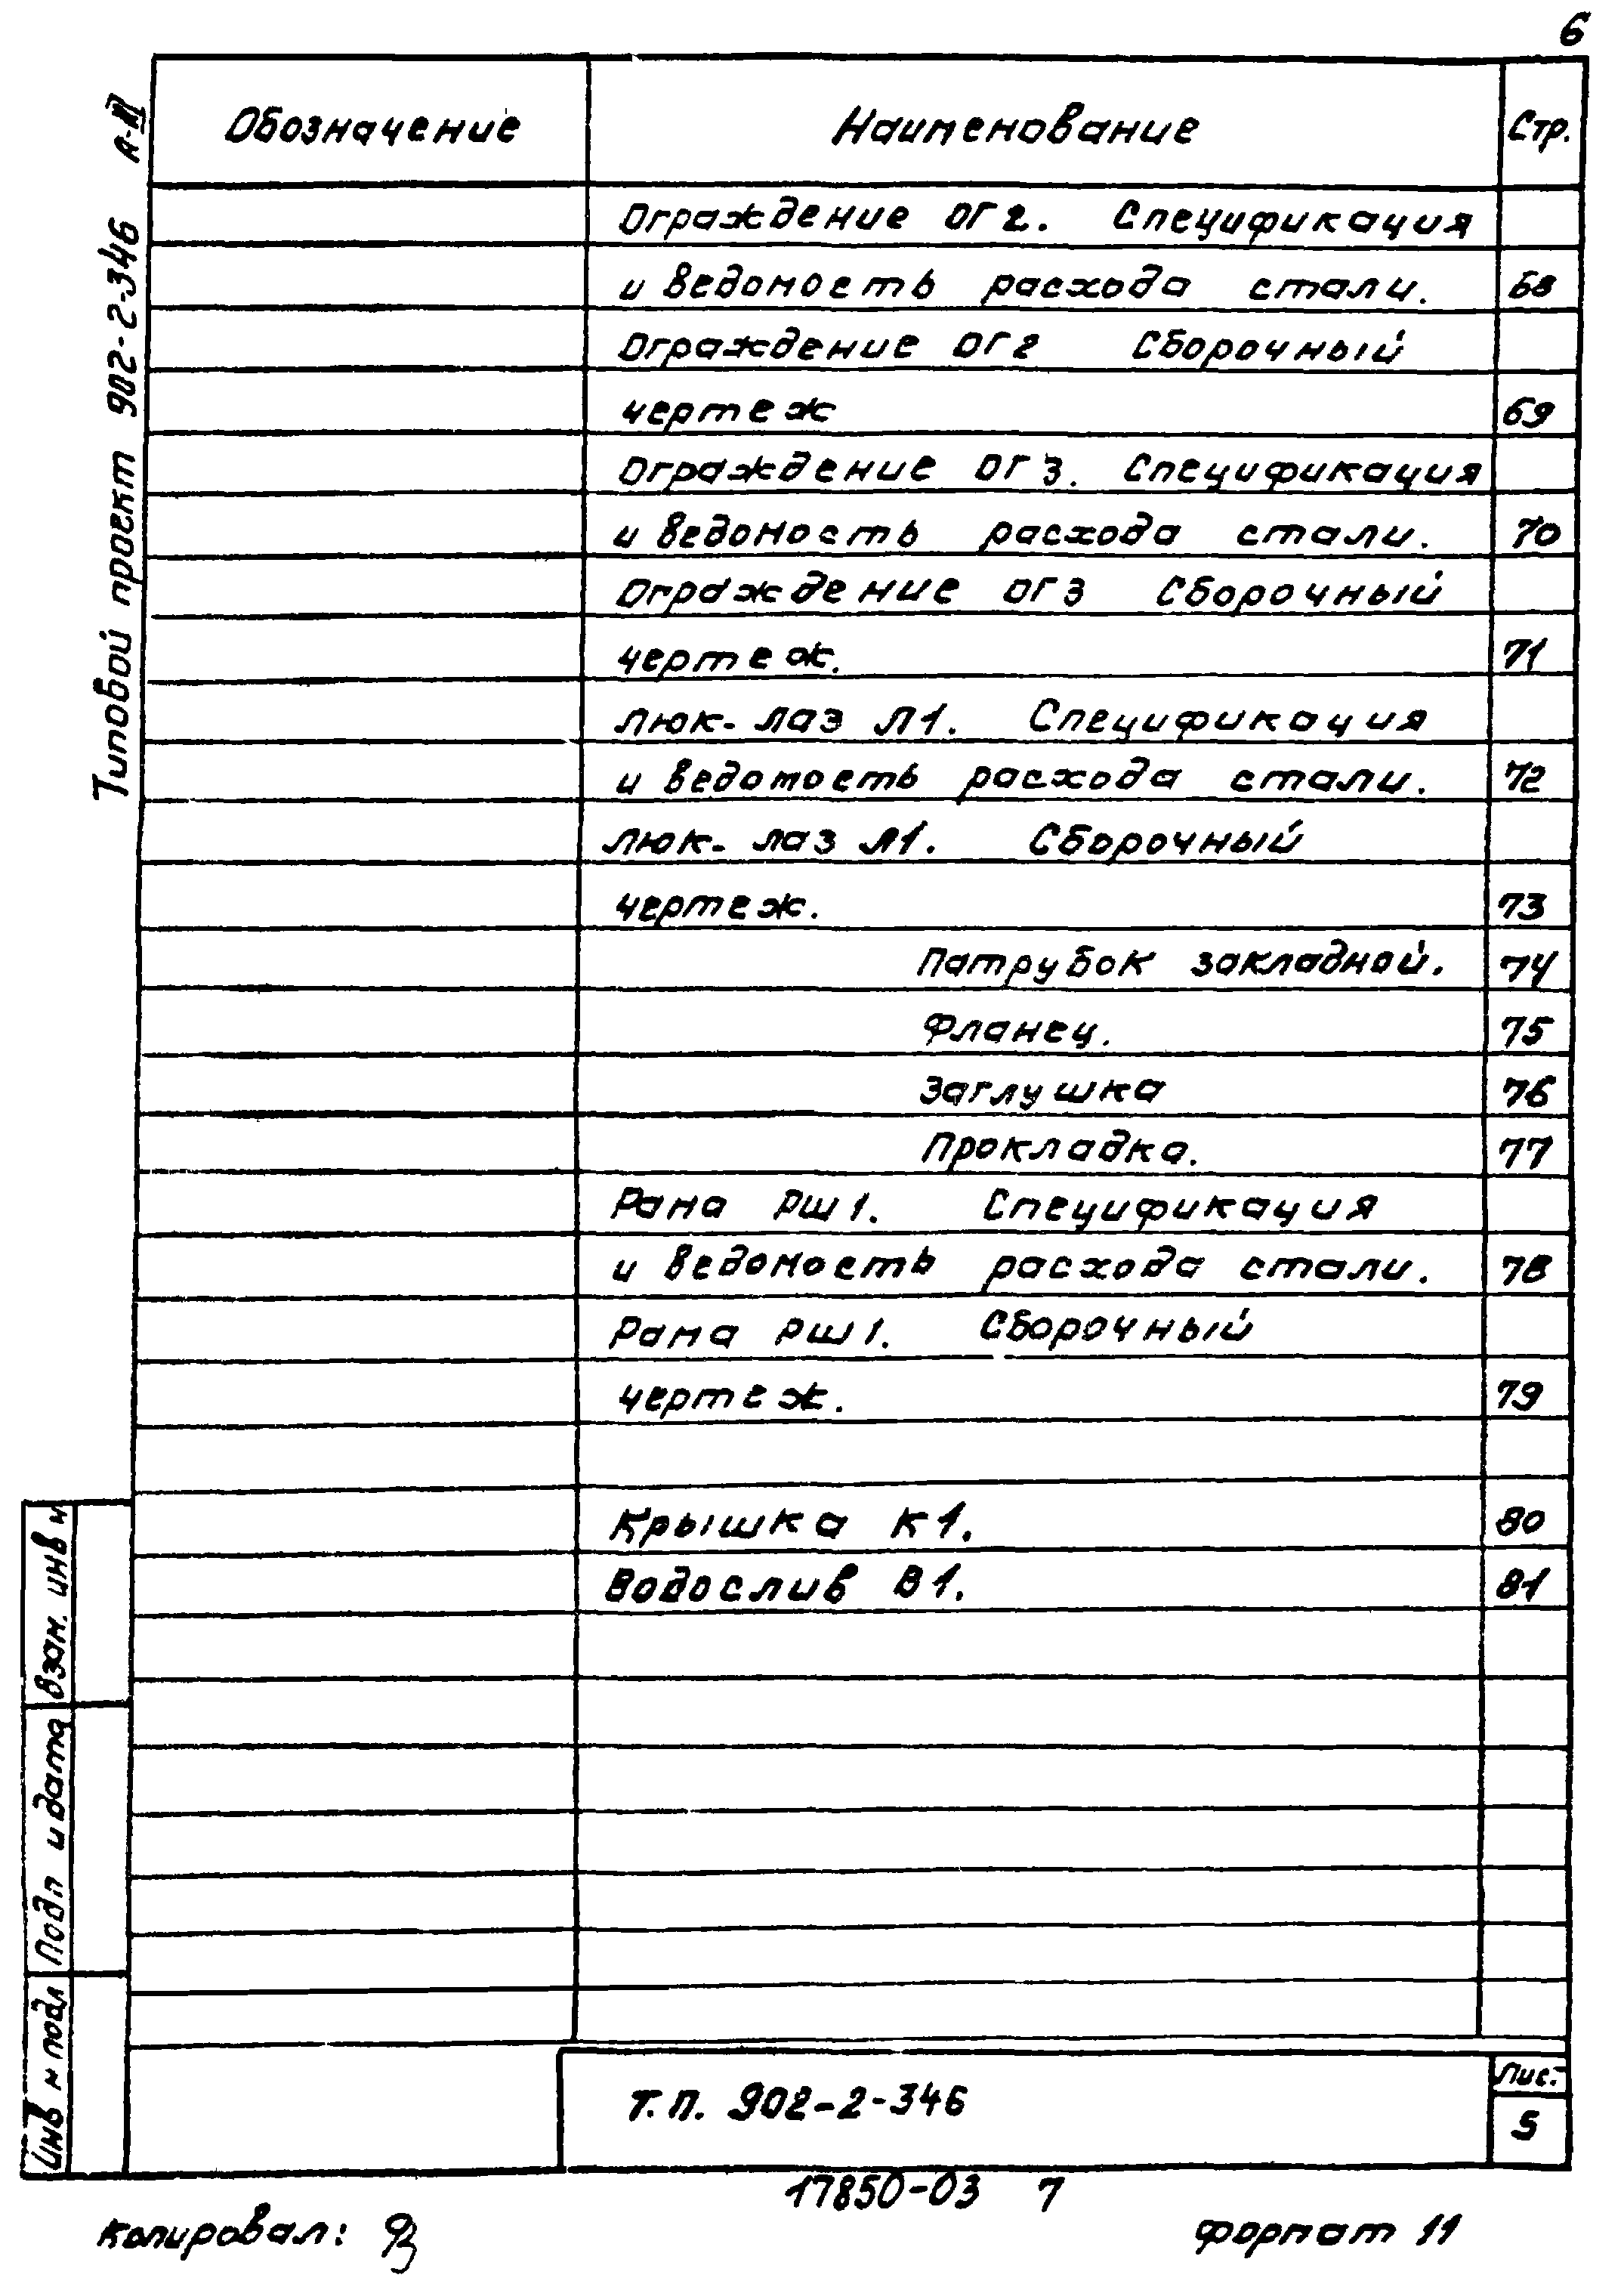 6
Типовой проект 902-2-346 А-III
Обозначение Наименование Стр.
Ограждение ОГ2. Спецификация
и ведомость расхода стали. 68
Ограждение ОГ2 Сборочный
чертеж 69
Ограждение ОГ3. Спецификация
и ведомость расхода стали. 70
Ограждение ОГ3 Сборочный
чертеж. 71
Люк-лаз Л1. Спецификация
и ведомость расхода стали. 72
Люк-лаз Л1. Сборочный
чертеж. 73
Патрубок закладной. 74
Фланец. 75
Заглушка 76
Прокладка. 77
Рама РШ1. Спецификация
и ведомость расхода стали. 78
Рама РШ1. Сборочный
чертеж. 79
Крышка К1. 80
Водослив В1. 81
Взам. инв н
Подп и дата
Инв н подл
Т.П. 902-2-346
Лис.
5
17850-03 7
Копировал:
Формат 11